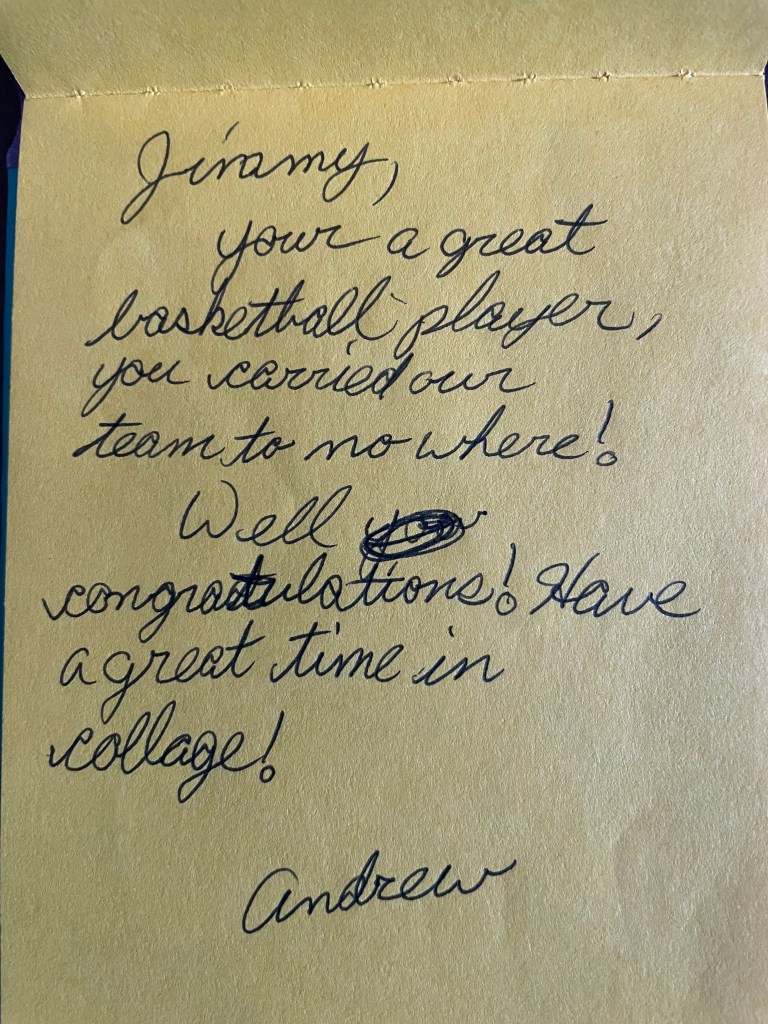 Jiramy,
your a great
basketball player,
you carried our
team to no where!
Well
congratulations! Have
a great time in
collage!
Andrew